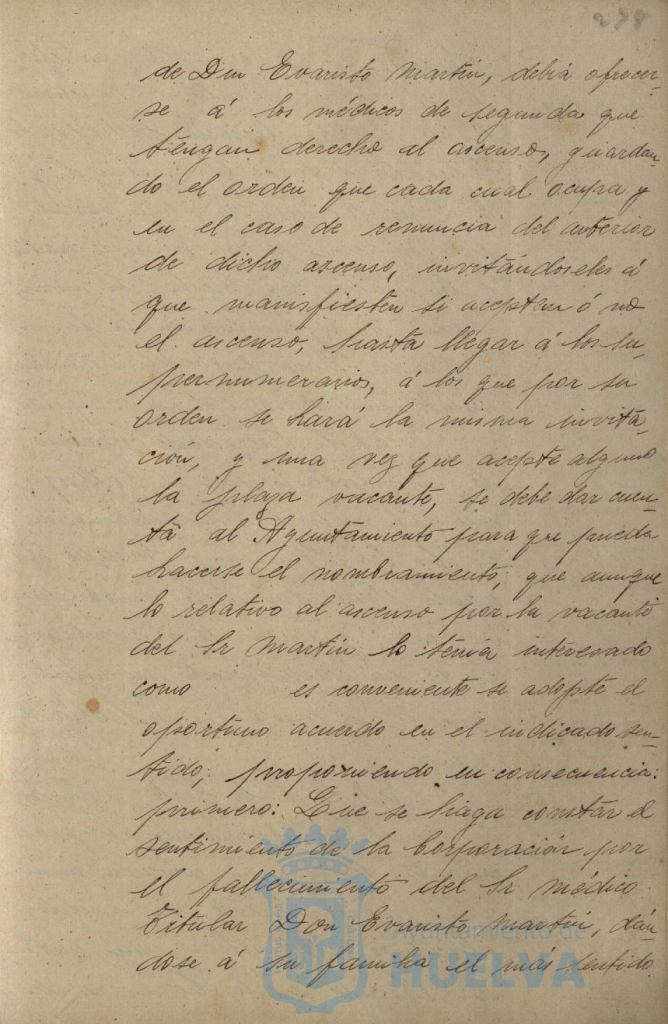 278
de Don Evaristo Martín, debiá ofrecer-
se á los médicos de segunda que
tengan derecho al ascenso, guardan-
do el orden que cada cual ocupa y
en el caso de renuncia del anterior
de dicho ascenso, invitándoseles á
que manisfiesten si aceptan ó no
el ascenso, hasta llegar á los su-
pernumerarios, á los que por su
orden se hará la misma invita-
ción, y una vez que acepte alguno
la plaza vacante, se debe dar cuen-
ta al Ayuntamiento para que pueda
hacerse el nombramiento, que aunque
lo relativo al ascenso por la vacante
del Sr Martín lo tenía interesado
como es conveniente se adopte el
oportuno acuerdo en el indicado sen-
tido, proponiendo en consecuencia:
primero: Que se haga constar el
sentimiento de la Corporación por
el fallecimiento del Sr médico
Titular Don Evaristo Martín, dán-
dose á su familia el más sentido
Ayuntamiento de
HUELVA